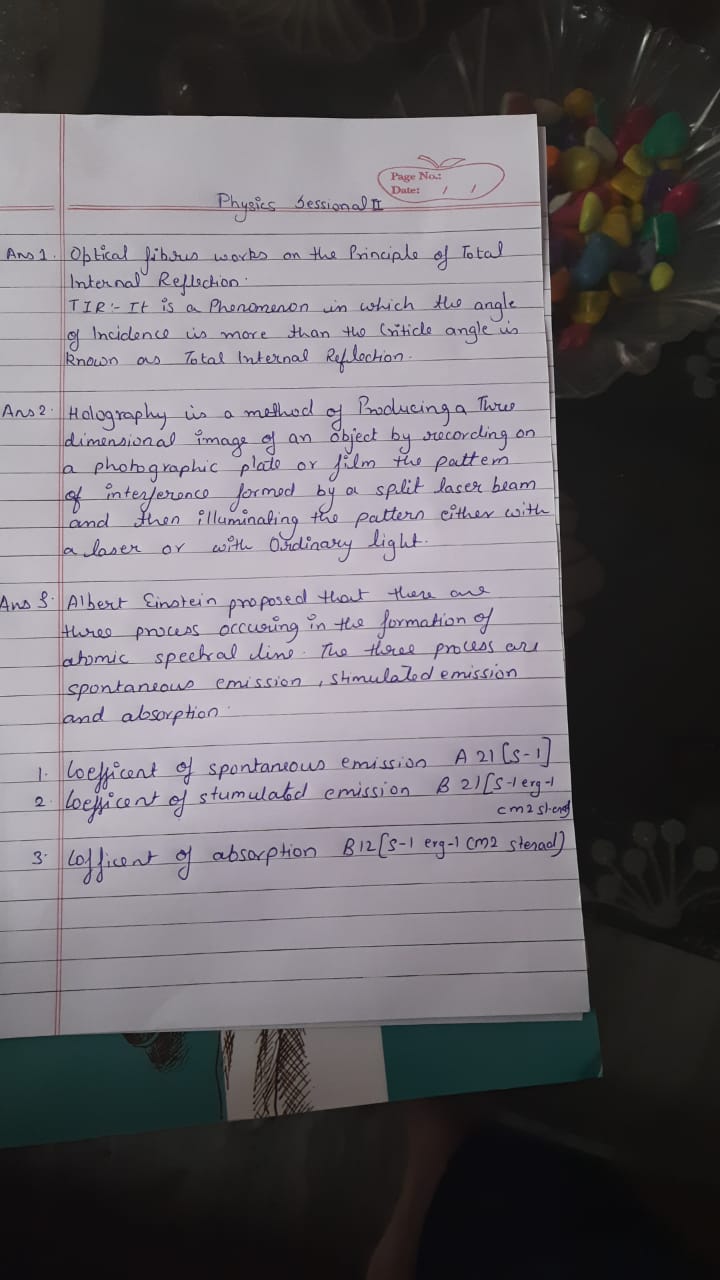 Page No.:
Date: / /
Physics Sessional II
Ans 1. Optical fibres works on the Principle of Total
Internal Reflection.
TIR:- It is a Phenomenon in which the angle
of Incidence is more than the Criticle angle is
known as Total Internal Reflection.
Ans 2. Holography is a method of Producing a Three
dimensional image of an object by recording on
a photographic plate or film the pattern
of interference formed by a split laser beam
and then illuminating the pattern either with
a laser or with Ordinary light.
Ans 3. Albert Einstein proposed that there are
three process occuring in the formation of
atomic spectral line. The three process are
spontaneous emission, stimulated emission
and absorption.
1. Coefficent of spontaneous emission A 21 [S-1]
2. Coefficent of stumulated emission B 21 [S-1 erg-1
cm2
3. Cofficent of absorption B12 [S-1 erg-1 cm2 sterad)